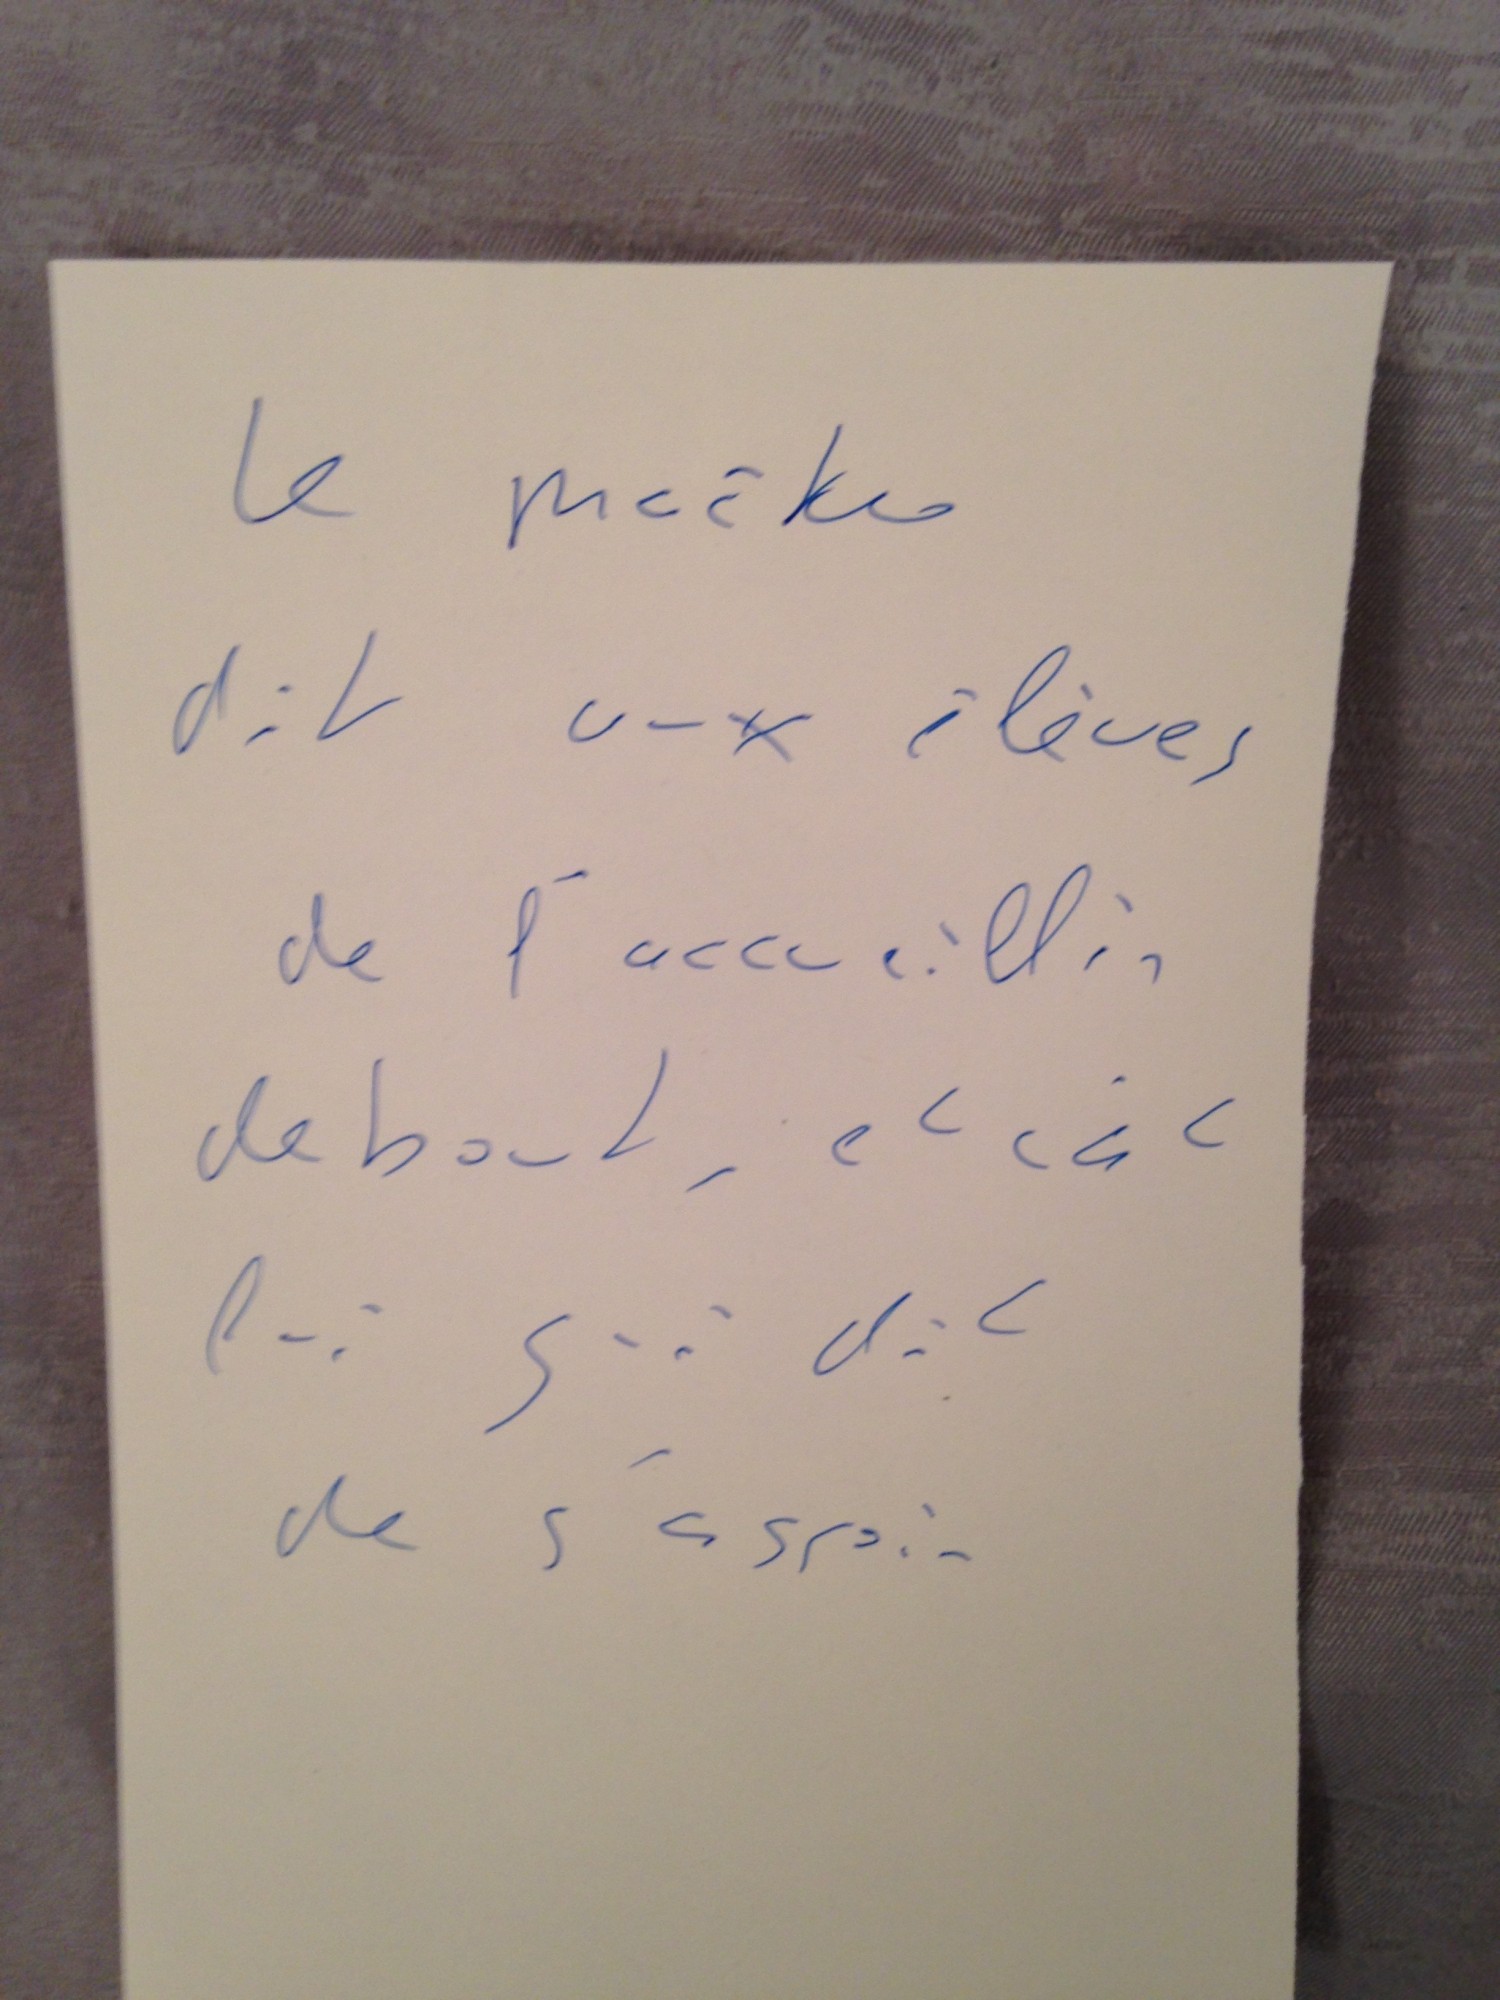 le maître
dit aux élèves
de l'accueillir
debout, et c'est
lui qui dit
de s'assoir